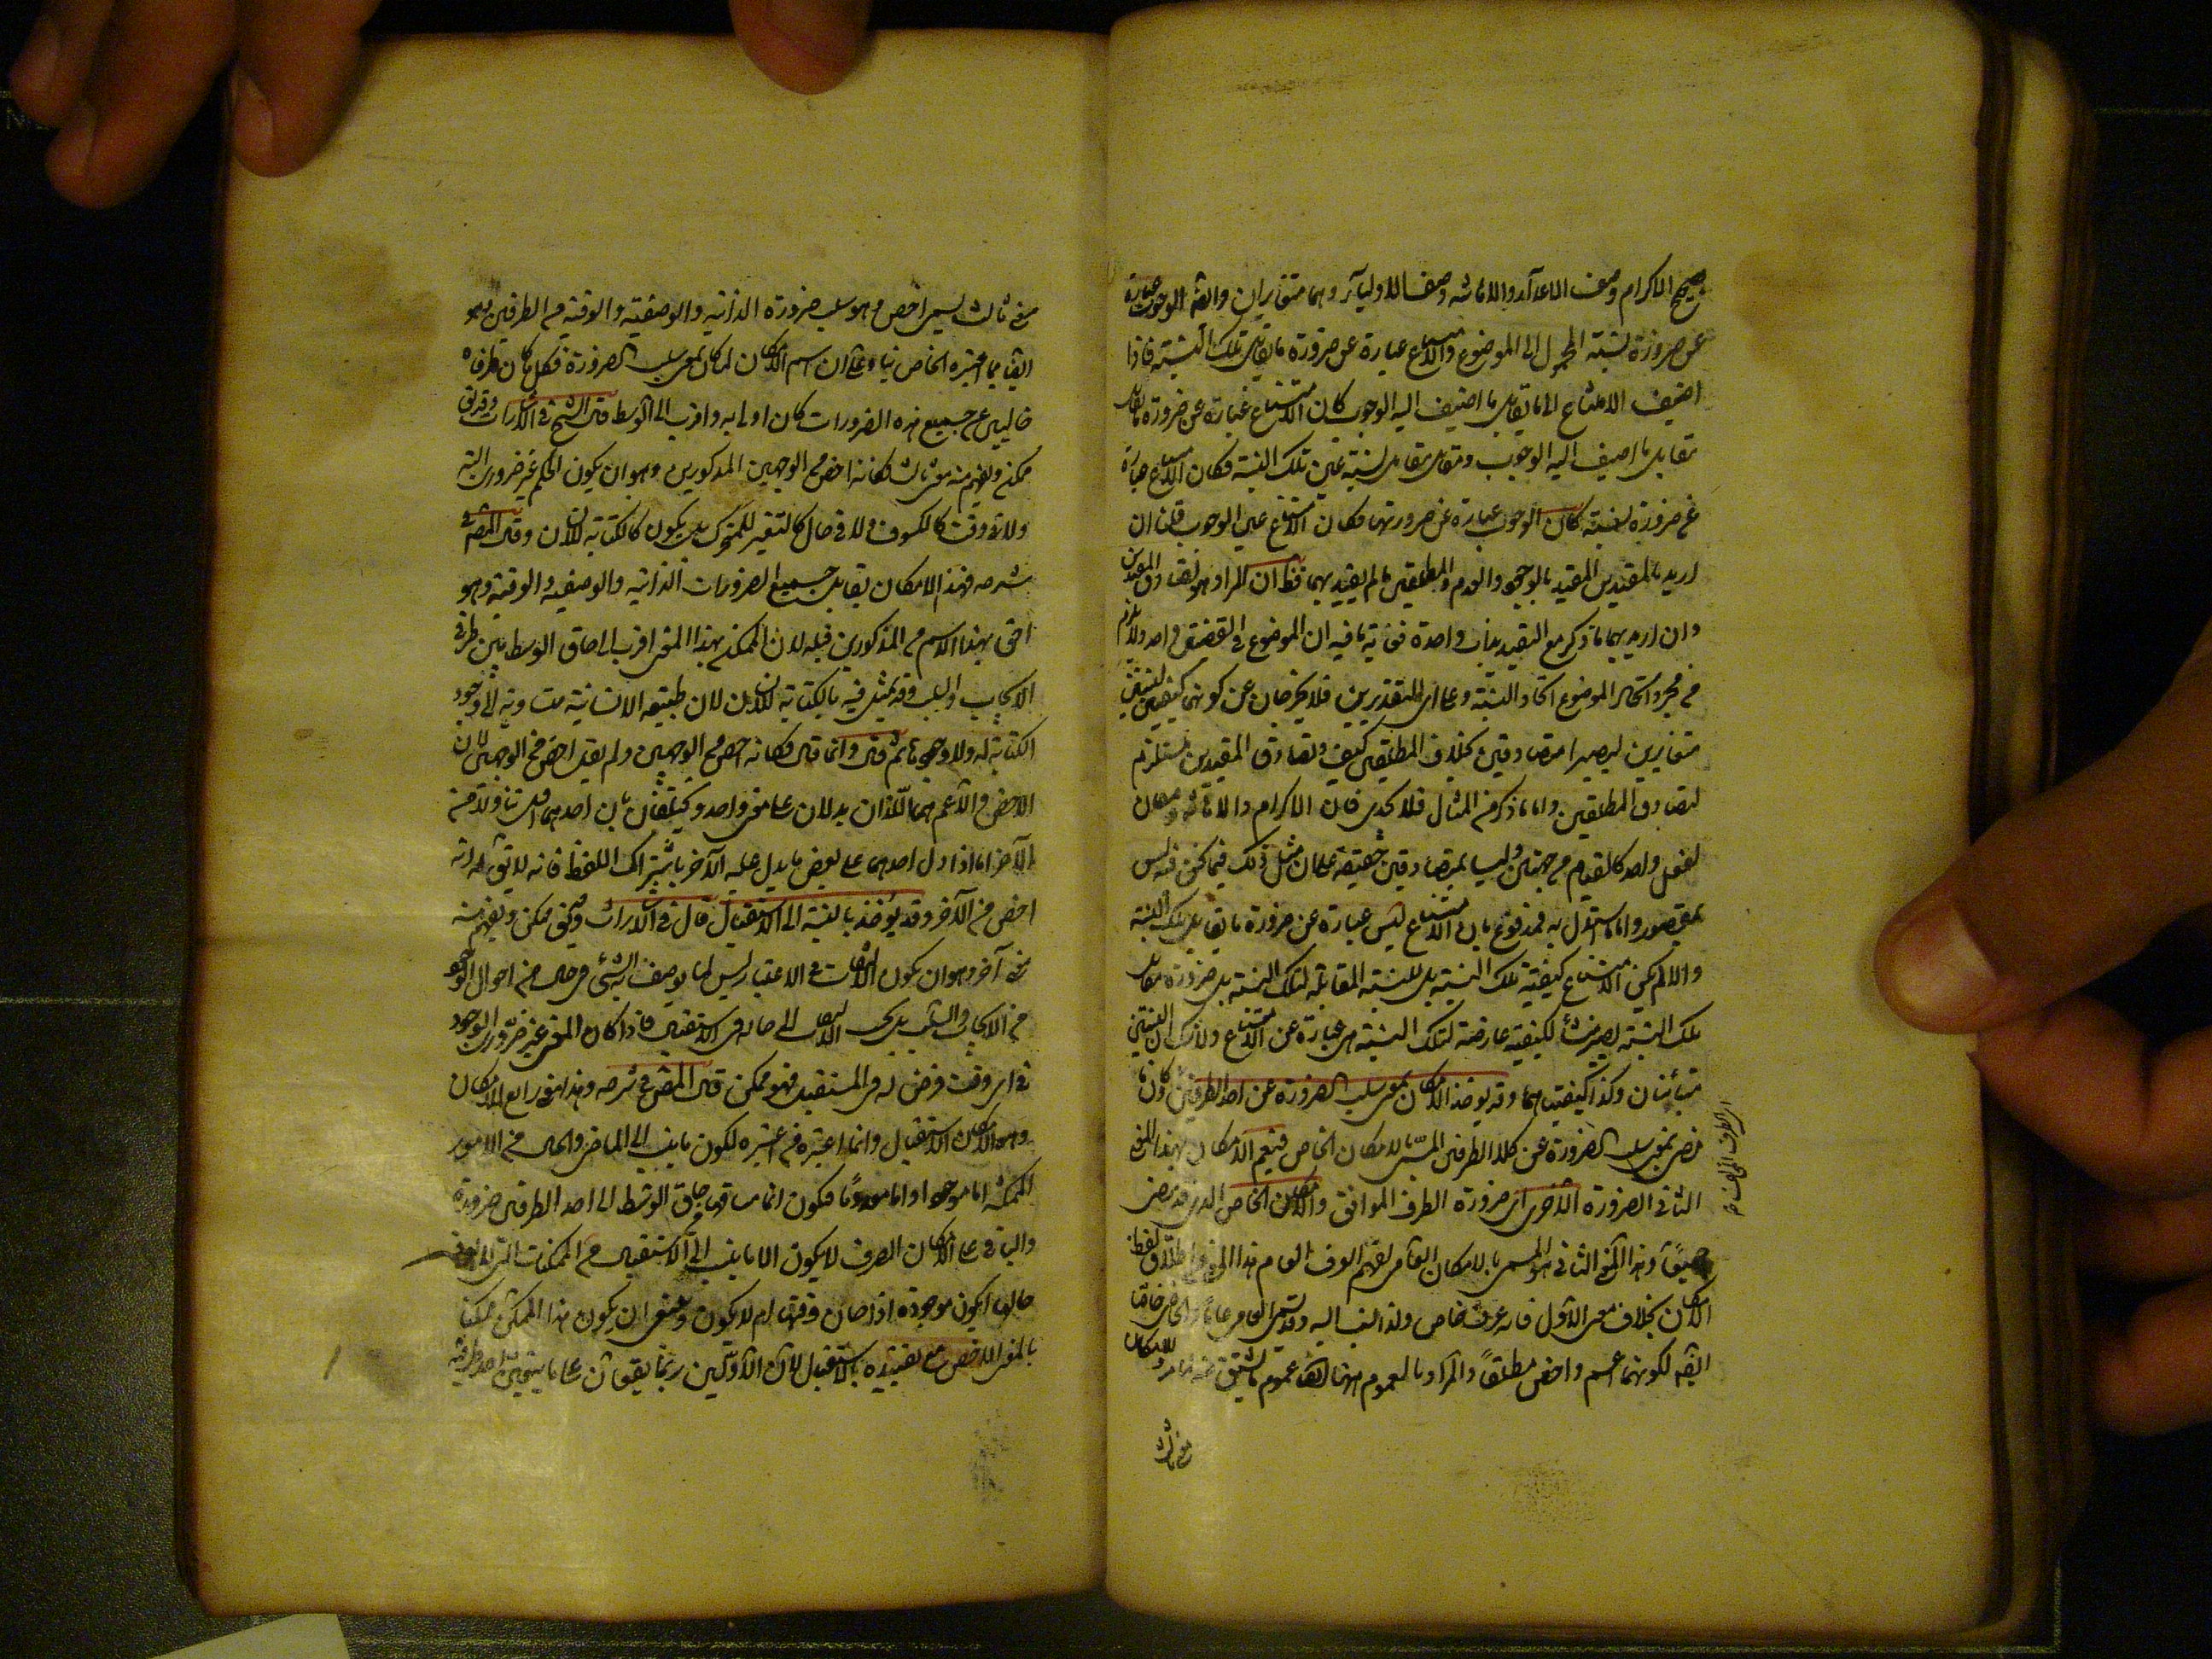 الاكرام وصف الاعدآء والاهانته وصف الاوليآء وهما متغايران وايضا الوجوب عبارة
عن ضرورة نسبة المحمول الى الموضوع والامتناع عبارة عن ضرورة ما يقابل تلك النسبة فاذا
اضيف الامتناع الى ما يقابل ما اضيف اليه الوجوب كان الامتناع عبارة عن ضرورة ما يقابل
مقابل ما اضيف اليه الوجوب ومقابل مقابل نسبة عين تلك النسبة فكان الامتناع عبارة
عن ضرورة نسبة كان الوجوب عبارة عن ضرورتها فكان الامتناع عين الوجوب قلنا ان
اريد بالمقيدين المقيد بالوجود والعدم وبالمطلقين ما لم يقيد بهما فظ ان المراد هو تصادق المقيدين
وان اريد بهما ما ذكر مع التقييد بذات واحدة ان الموضوع في القضيتين واحد ولا يلزم
من مجرد اتحاد الموضوع اتحاد النسبة وعلى التقديرين فلا يخرجان عن كونهما كيفيتين لنسبتين
متغايرين ليصيرا متصادقين بخلاف المطلقين كيف وتصادق المقيدين مستلزم
لتصادق المطلقين واما ما ذكر من المثال فلا يجدى فان الاكرام والاهانة وصفان
لفعل واحد كالقيام من جهتين وليسا بمتصادقين حقيقة على ان مثل ذلك فيما نحن فيه ليس
بمتصور واما ما استدل به فمدفوع بان الامتناع ليس عبارة عن ضرورة ما يقابل تلك النسبة
والا لم يكن الامتناع كيفية تلك النسبة بل للنسبة المقابلة لتلك النسبة بل ضرورة مقابل
تلك النسبة يصير منشأ لكيفية عارضة لتلك النسبة هى عبارة عن الامتناع ولا شك ان النسبتين
متبائنان وكذا كيفيتاهما وقد يؤخذ الامكان بمعنى سلب الضرورة عن احد الطرفين كان ما
مضى بمعنى سلب الضرورة عن كلا الطرفين المسمى بالامكان الخاص فيعم الامكان بهذا المعنى
الثانى الضرورة الاخرى اى ضرورة الطرف الموافق والامكان الخاص الذى قد مضى
جميعًا وهذا المعنى الثانى هو المسمى بالامكان العامى لفهم العرف العام هذا المعنى من اطلاق لفظ
الامكان بخلاف معنى الاول فانه عرف خاص ولذا نسب اليه وقد يسمى العامى عاما والخاصى خاصا
ايضا لكونهما اعم واخص مطلقًا والمراد بالعموم
معنى ثالث
اى الطرف المخالف
معنى ثالث يسمى اخص وهو سلب ضرورة الذاتية والوصفية والوقتية من الطرفين وهو
ايضا مما اعتبره الخاص بناء على ان اسم الامكان لما كان بمعنى سلب الضرورة فكل ما كان طرفاه
خاليين عن جميع هذه الضرورات كان اولى به واقرب الى الوسط قال الشيخ في الاشارات وقد يق
ممكن ويفهم منه معنى ثالث فكانه اخص من الوجهين المذكورين وهو ان يكون الحكم غير ضرورى البتة
ولا في وقت كالكسوف ولا في حال كالتغير للمتحرك بل يكون كالكتابة للانسان وقال المصنف في
شرحه فهذا الامكان يقابل جميع الضرورات الذاتية والوصفية والوقتية وهو
احق بهذا الاسم من المذكورين قبله لان الممكن بهذا المعنى اقرب الى حاق الوسط بين طرفى
الايجاب والسلب وقد يمثل فيه بالكتابة للانسان لان طبيعة الانسانية متساوية الى وجود
الكتابة له ولا وجودها ثم قال وانما قال فكانه اخص من الوجهين ولم يقل اخص من الوجهين لان
الاخص والاعم هما اللذان يدلان على معنى واحد ويختلفان بان احدهما اقل تناولا من
الآخر اما اذا دل احدهما على بعض ما يدل عليه الآخر باشتراك اللفظ فانه لا يق له انه
اخص من الآخر وقد يؤخذ بالنسبة الى الاستقبال قال في الاشارات وقد يق ممكن ويفهم منه
معنى آخر وهو ان يكون الالتفات في الاعتبار ليس لما يوصف به الشئ في حال من احوال الوجود
من الايجاب والسلب بل بحسب الالتفات الى حاله في الاستقبال فاذا كان المعنى غير ضرورى الوجود
في اى وقت فرض له في المستقبل فهو ممكن قال المصنف في شرحه وهذا معنى رابع للامكان
وهو الامكان الاستقبالى وانما اعتبره من اعتبره لكون ما ينسب الى الماضى والحال من الامور
الممكنة اما موجودا او اما معدومًا فيكون انما ساقها من حاق الوسط الى احد الطرفين ضرورة
والباقى على الامكان الصرف لا يكون الا ما ينسب الى الاستقبال من الممكنات التى لا يعرف
حالها ايكون موجودة اذا حان وقتها ام لا يكون وينبغى ان يكون هذا الممكن ممكنا
بالمعنى الاخص مع تقييده بالاستقبال لان الاولين ربما يقعان على ما يتعين احد طرفيه